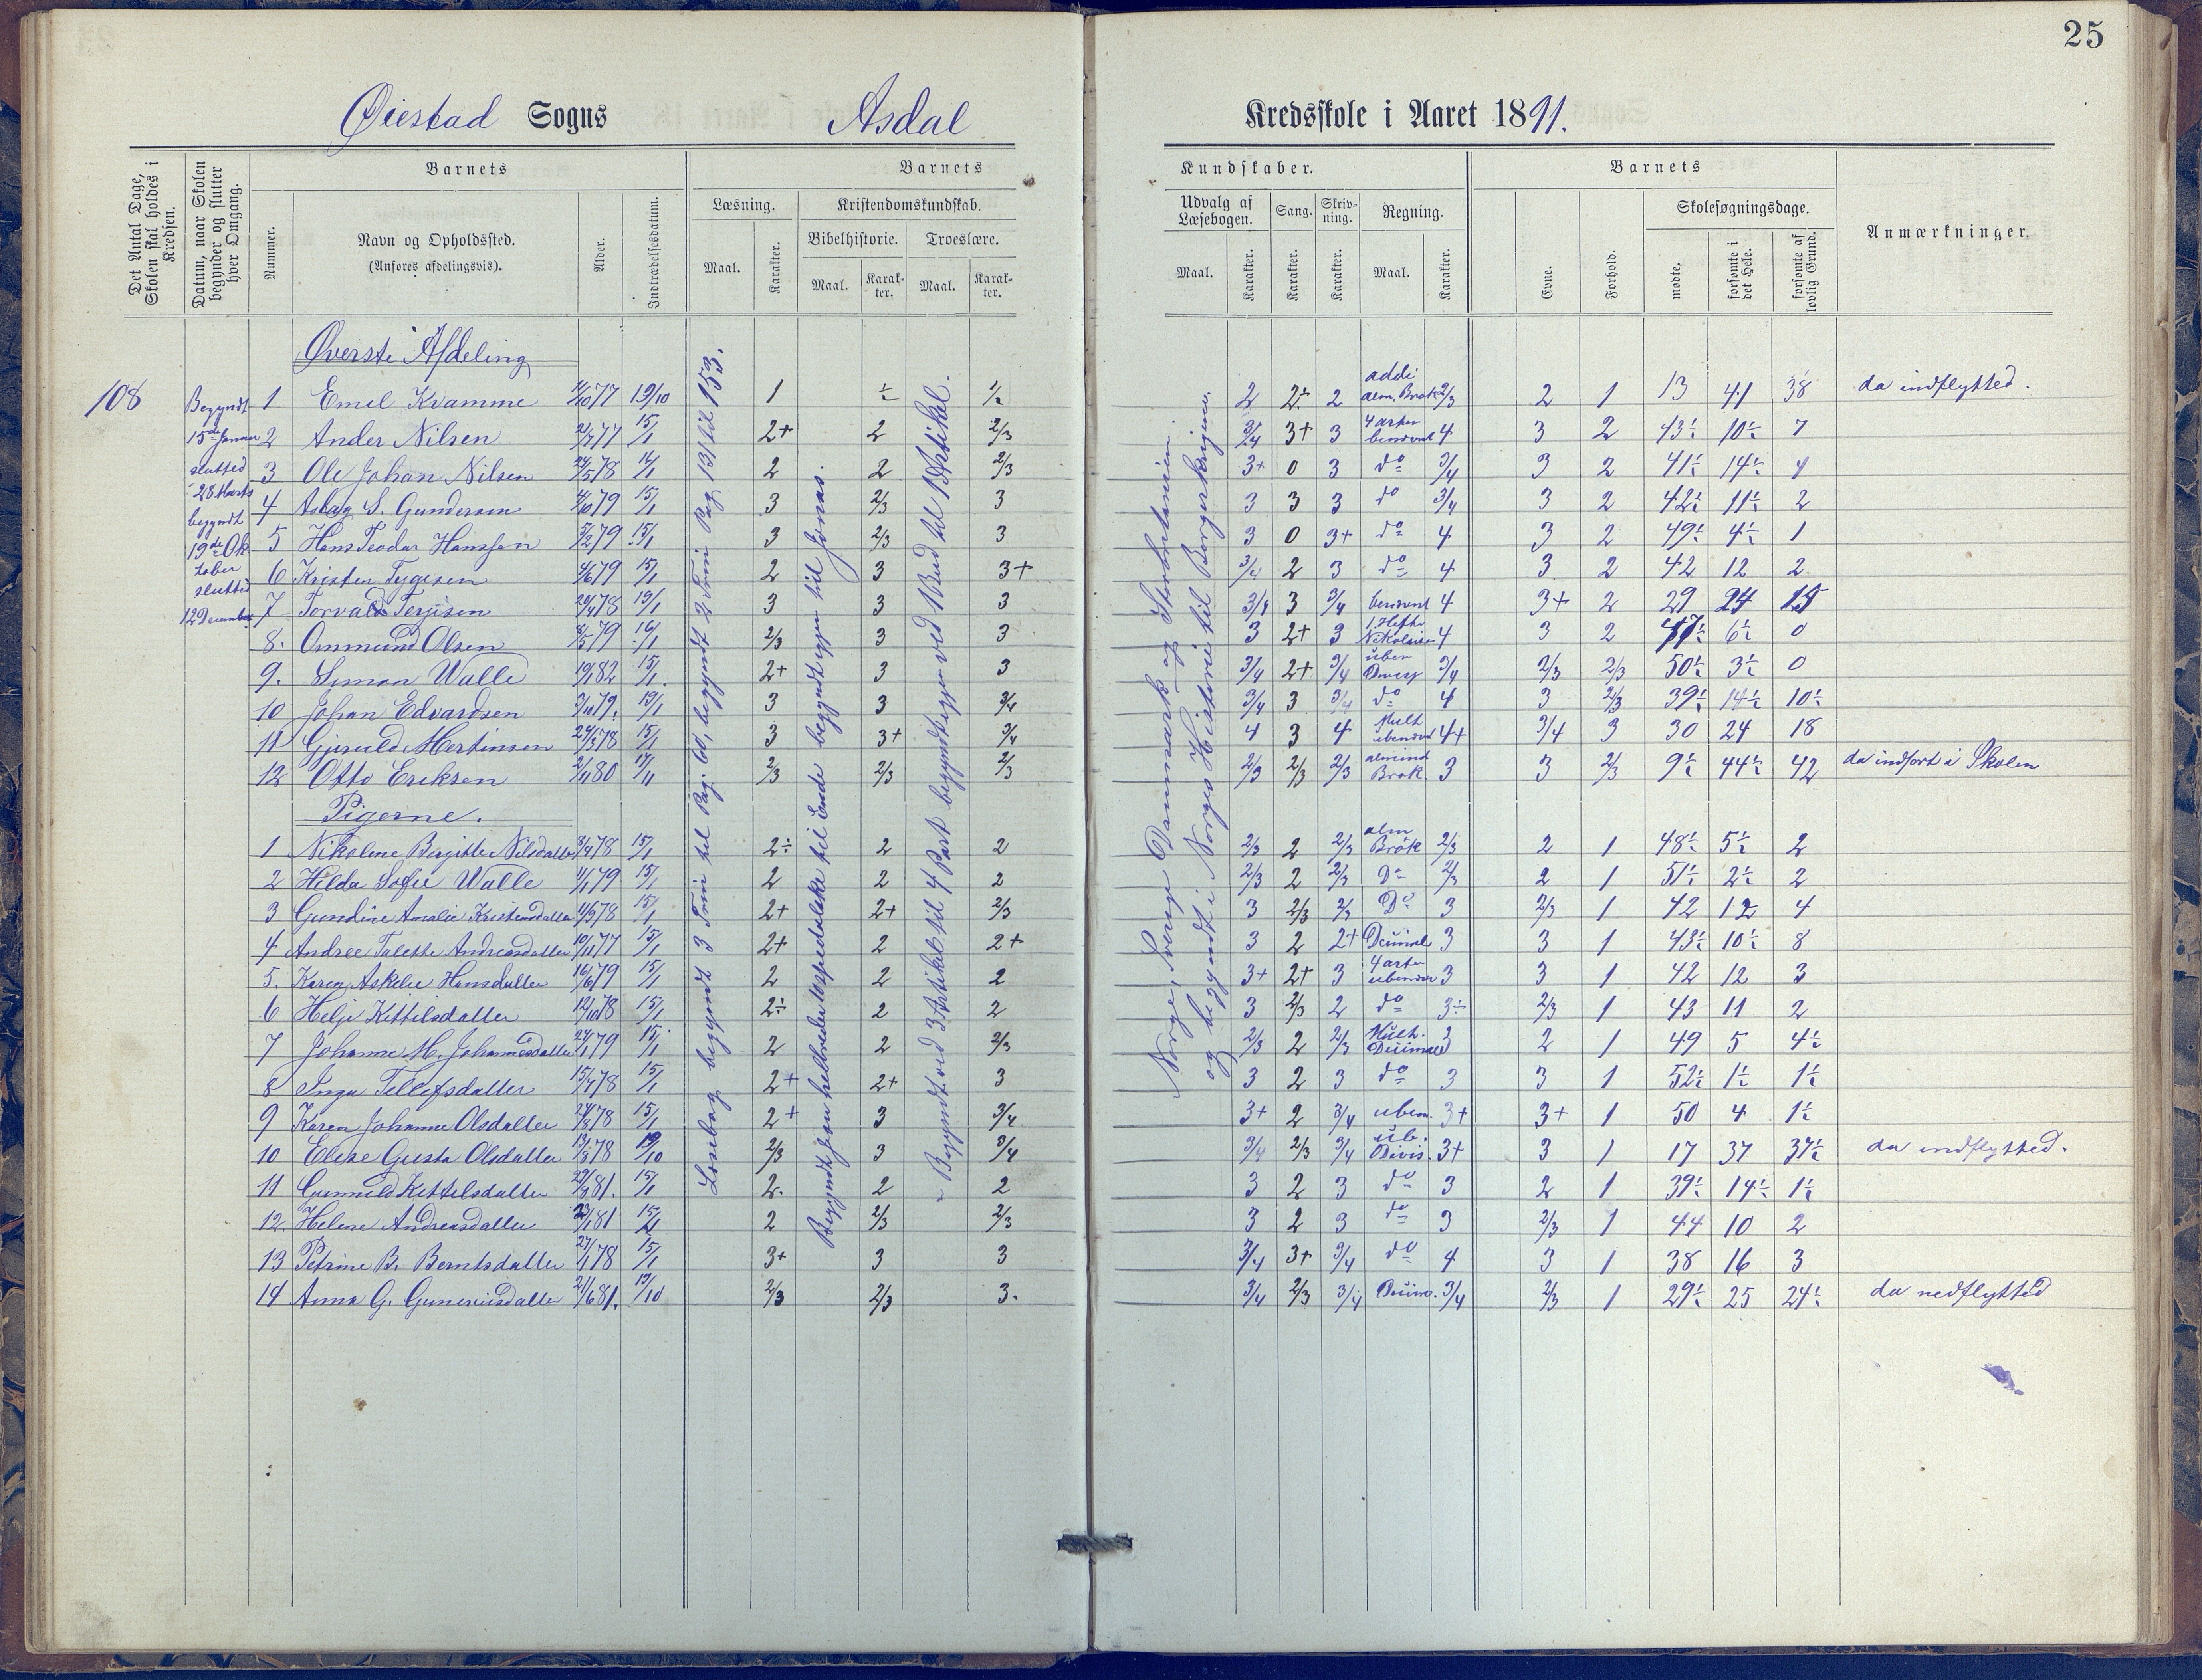 25
Øiestad Sogns Asdal Kredsskole i Aaret 1891.
Det Antal Dage, Skolen skal holdes i Kredsen.
Datum, naar Skolen begynder og slutter hver Omgang.
Nummer.
Barnets
Navn og Opholdssted.
(Anføres afdelingsvis).
Alder.
Indtrædelsesdatum.
Barnets Kundskaber.
Læsning.
Maal. Karakter.
Kristendomskundskab.
Bibelhistorie. Troeslære.
Maal. Karakter. Maal. Karakter.
Udvalg af Læsebogen. Sang. Skrivning. Regning.
Maal. Karakter. Karakter. Karakter. Maal. Karakter.
Barnets
Evne. Forhold.
Skolesøgningsdage.
mødte. forsømte i det Hele. forsømte af lovlig Grund.
Anmærkninger.
108
Begyndt
15de Januar
slutted
28 Marts
begyndt
19de Ok
tober
slutted
12 December
Øverste Afdeling
1 Emil Kvamme 77 19/10 1 ÷ ½ 2 2÷ 2 addi alm. Brøk 2/3 2 1 13 41 38 da indflytted.
2 Ander Nilsen 77 15/1 2+ 2 2/3 3/4 3+ 3 4 arter benævnt 4 3 2 43½ 10½ 7
3 Ole Johan Nilsen 24/5 78 16/1 2 2 2/3 3+ 0 3 do 3/4 3 2 41½ 14½ 4
4 Aslag S. Gundersen 79 15/1 3 2/3 3 3 3 3 do 3/4 3 2 42½ 11½ 2
5 Hans Teodor Hansson 5/2 79 15/1 3 2/3 3 3 0 3+ do 4 3 2 49½ 4½ 1
6 Kristen Tygesen 4/6 79 15/1 2 3 3+ 3/4 2 3 do 4 3 2 42 12 2
7 Torvald Terjisen 20/4 78 19/1 3 3 3 3/4 3 3/4 benævnt 4 3+ 2 29 24 15
8. Ommund Olsen 79 16/1 2/3 3 3 3 2+ 3 1. Hefte 4 3 2 47½ 6½ 0
9. Simon Walle 82 15/1 2+ 3 3 3/4 2+ 3/4 uben 3/4 2/3 2/3 50½ 3½ 0
10 Johan Edvardsen 3/10 79. 19/1 3 3 3/4 3/4 3 3/4 do 4 3 2/3 39½ 14½ 10½
11 Gjeruld Mortinsen 78 15/1 3 3+ 3/4 4 3 4 Mult ubenævn 4+ 3/4 3 30 24 18
12 Otto Eriksen 2/11 80 2/3 2/3 2/3 2/3 2/3 2/3 almind Brøk 3 3 2/3 9½ 44½ 42 da indført i Skolen
Pigerne.
1 Nikoline Bergitte Nilsdatter 78 15/1 2÷ 2 2 2/3 2 2/3 alm Brøk 2/3 2 1 48½ 5½ 2
2 Hilda Sofie Walle 79 15/1 2 2 2 2/3 2 2/3 Do 2/3 2 1 51½ 2½ 2
3 Gundine Amalie Kristensdatter 78 15/1 2+ 2+ 2/3 3 2/3 2/3 Do 3 2/3 1 42 12 4
4 Andree Talette Andreasdatter 10/11 77 15/1 2+ 2 2+ 3 2 2+ Deimal 3 3 1 43½ 10½ 8
5. Karen Askelie Hansdatter 16/6 79 15/1 2 2 2 3+ 2+ 3 4 arter ubenævn 3 3 1 42 12 3
6 Helje Kittilsdatter 12/10 78 15/1 2÷ 2 2 3 2/3 2 do 3÷ 2/3 1 43 11 2
7 Johanne M. Johannesdatter 24/1 79 15/1 2 2 2/3 2/3 2 2/3 Mult. Deimal 3 2 1 49 5 4½
8 Inga Tellefsdatter 15/4 78 15/1 2+ 2+ 3 3 2 3 do 3 3 1 52½ 1½ 1½
9 Karen Johanne Olsdatter 78 15/1 2+ 3 3/4 3+ 2 3/4 uben. 3+ 3+ 1 50 4 1½
10 Elise Gusta Olsdatter 78 19/10 2/3 3 3/4 3/4 2/3 3/4 ub. Divis. 3+ 3 1 17 37 37½ da indflytted.
11 Gunnild Kittilsdatter 81. 15/1 2. 2 2 3 2 3 do 3 2 1 39½ 14½ 1½
12. Helene Andreasdatter 81 15/1 2 2/3 2/3 3 2 3 do 3 2/3 1 44 10 2
13 Petrine B. Berntsdatter 27/1 78 15/1 3+ 3 3 3/4 3+ 3/4 do 4 3 1 38 16 3
14 Anna G. Guneriusdatter 21/6 81. 19/10 2/3 2/3 3. 3/4 2/3 3/4 3/4 2/3 1 29½ 25 24½ da nedflytted
Læsebog begyndt 3 Trin til Pag. 60, begyndt 2 Trin Pag 131 til 153.
Begyndt Jesu helbreder spedalske til Ende begyndt igjen til Jonas.
Begyndt ved 3 Artikel til 4 Part begyndt igjen ved 1 Bud til 1 Artikel.
Norge, Sverige Danmark og Storbritanien.
og begyndt i Norges Historie til Borgerkrigene.